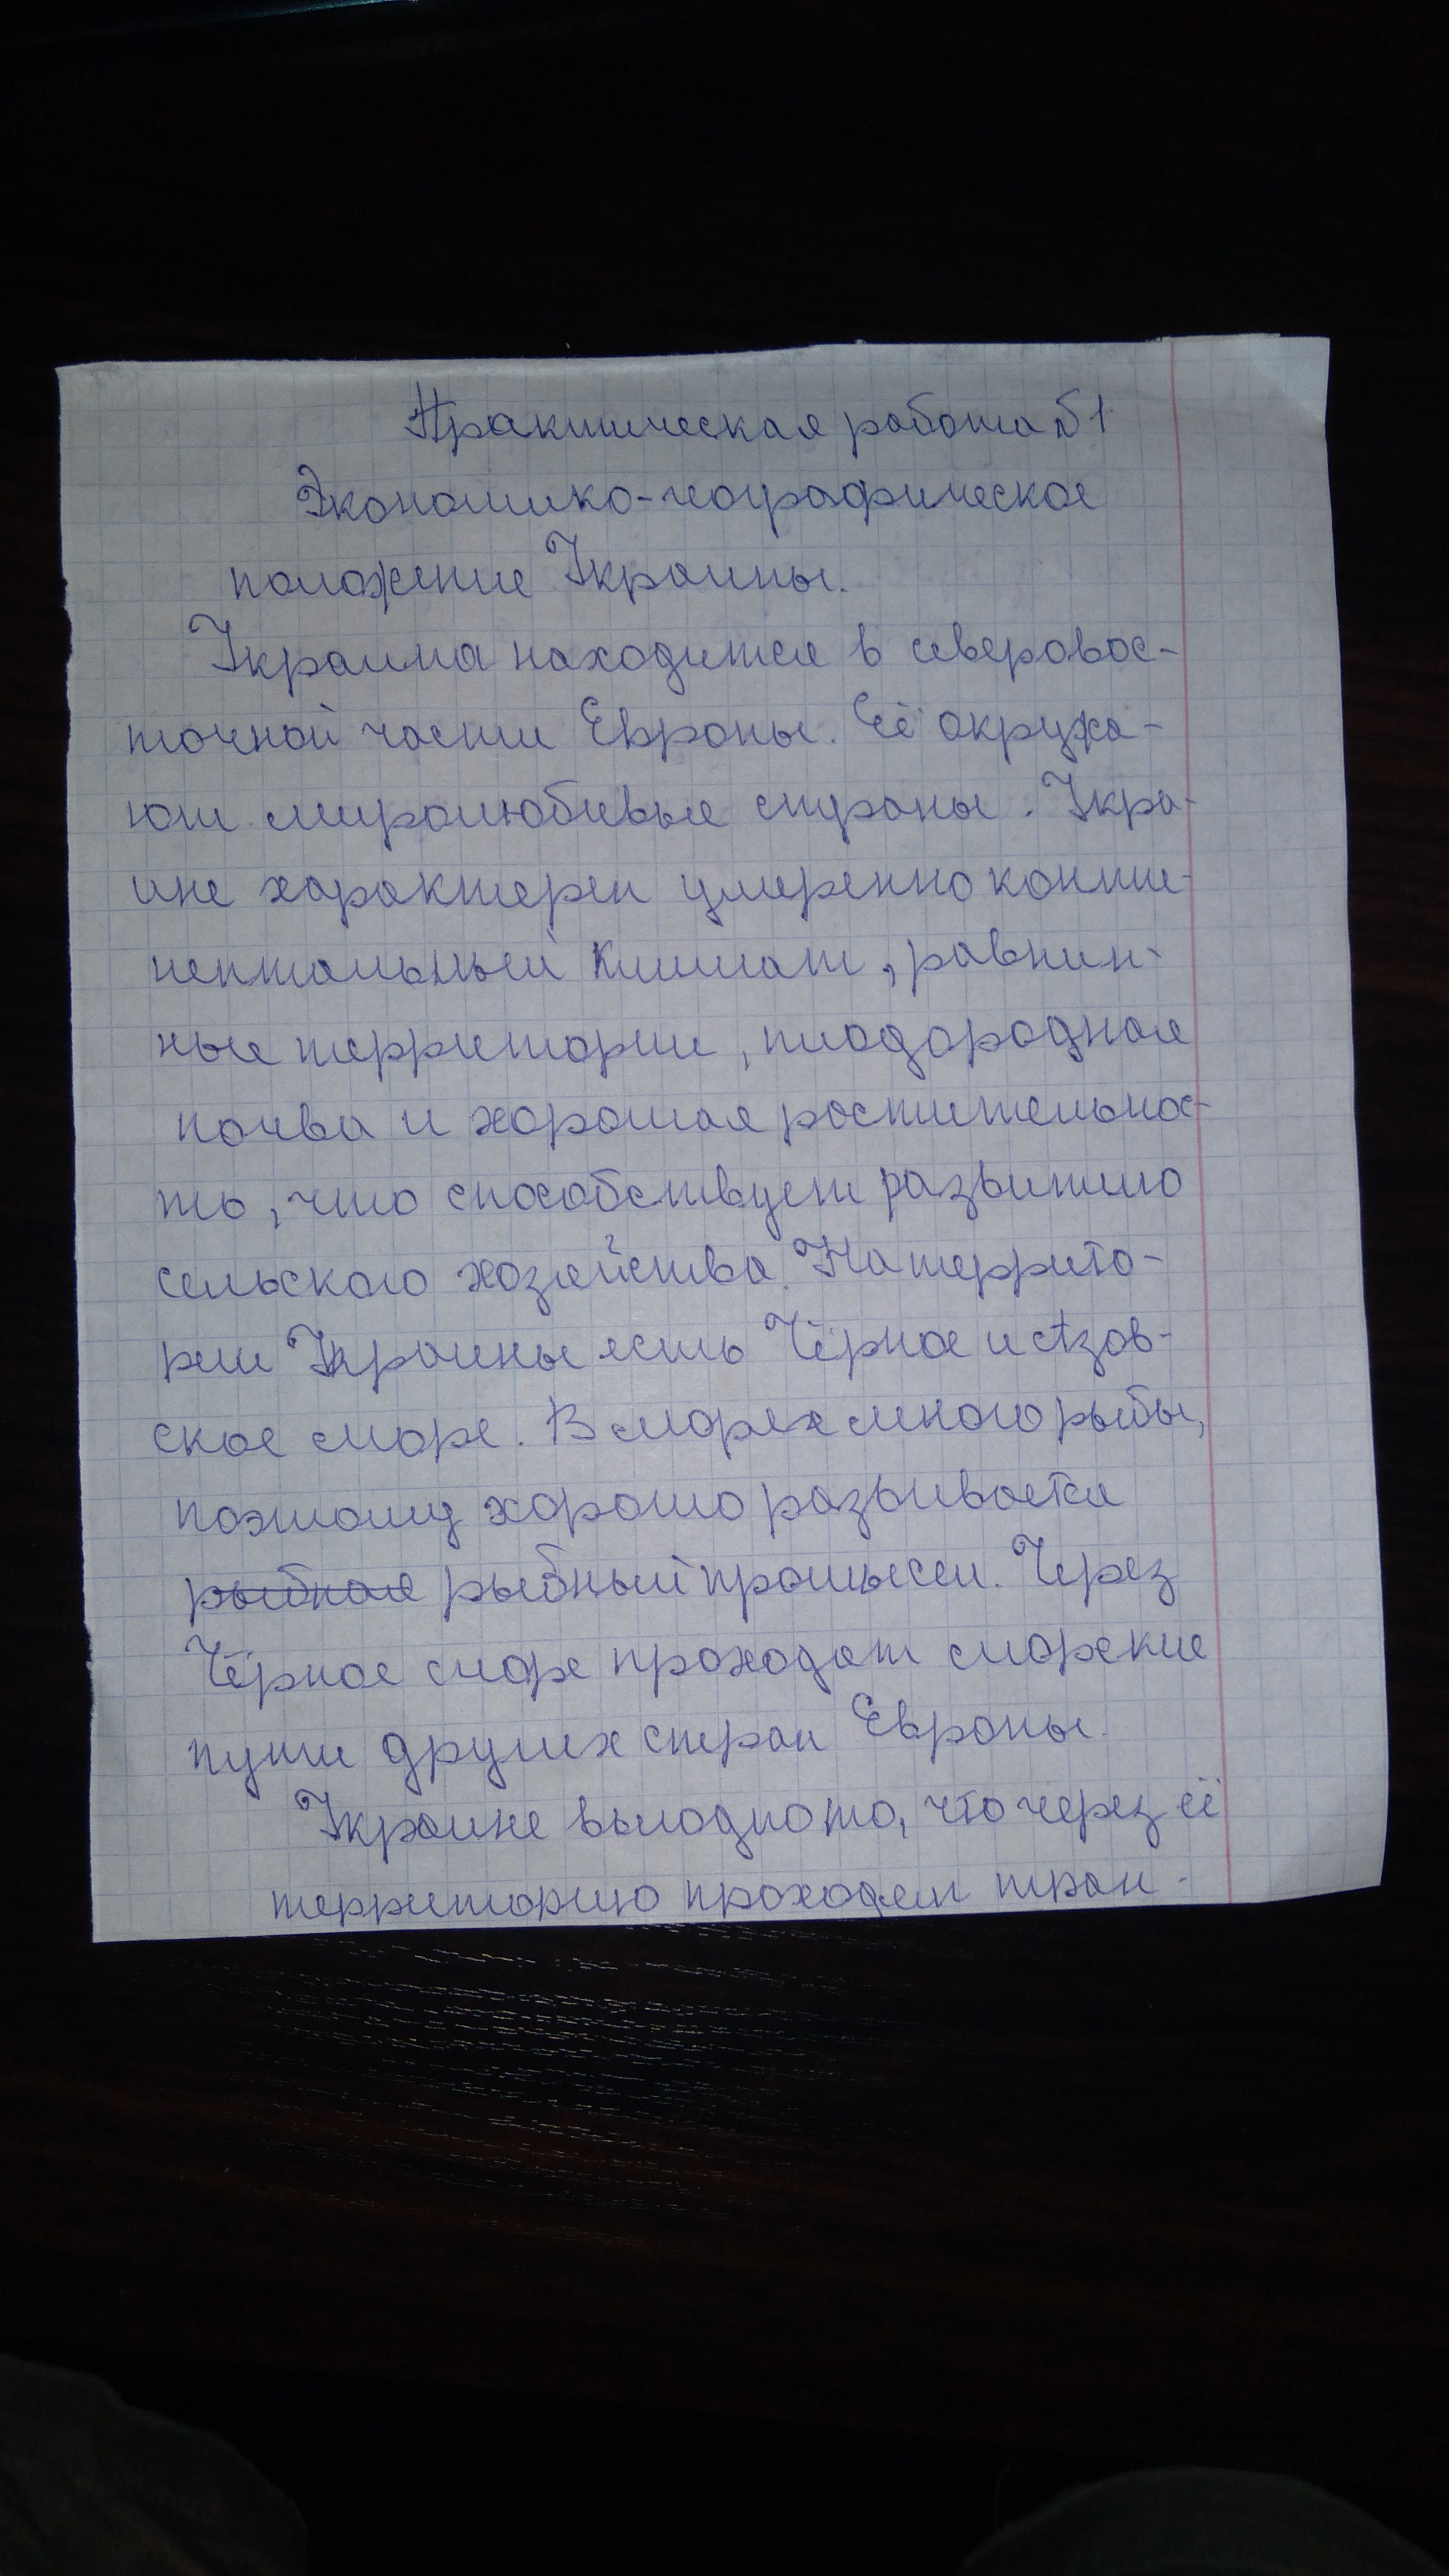 Практическая работа №1
Экономико-географическое
положение Украины.
Украина находится в северовос-
точной части Европы. Её окружа-
ют миролюбивые страны. Укра-
ине характерен умеренно конти-
нентальный климат, равнин-
ные территории, плодородная
почва и хорошая растительнос-
ть, что способствует развитию
сельского хозяйства. На террито-
рии Украины есть Чёрное и Азов-
ское море. В морях много рыбы,
поэтому хорошо развивается
рыбная рыбный промысел. Через
Чёрное море проходят морские
пути других стран Европы.
Украине выгодно то, что через её
территорию проходят тран-